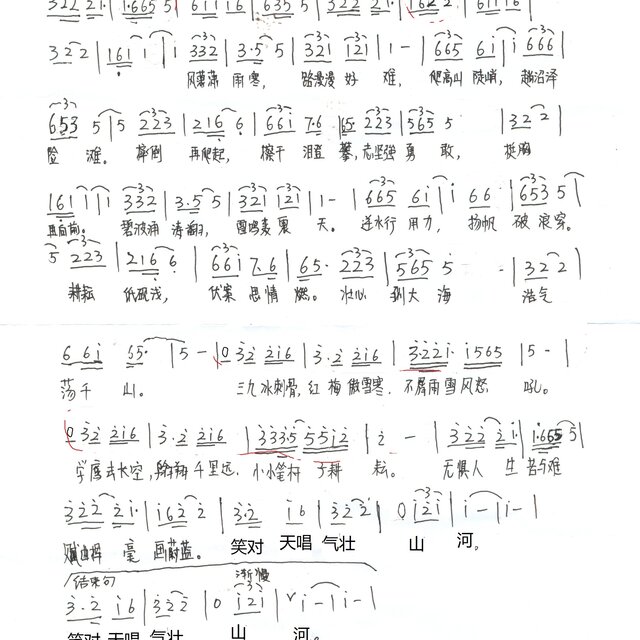 322 21· | 1·665 5 | 6116 16 | 635 5 | 322 21· | 162 2 | 6116 16 |
322 | 161 1 | 1 332 | 3·5 5 | 321 121 | 1 - | 665 61 | 1 666 |
风萧萧 雨寒， 路漫漫 好 难， 爬高山 陡峭， 越沼泽
653 5 | 5 223 | 216 6 | 661 7·6 | 65· 223 | 565 5 | 322 |
险 滩。 摔倒 再爬起， 擦干 泪登 攀，志坚强 勇 敢， 挺胸
161 1 | 1 332 | 3·5 5 | 321 121 | 1 - | 665 61 | 1 66 | 653 5 |
且向前。 碧波涌 涛翻， 裹 天。 逆水行 用力， 扬帆 破 浪穿。
5 223 | 216 6 | 661 7·6 | 65· 223 | 565 5 - | 322 |
耕耘 浅， 伏案 思情 燃。 壮心 到大 海 浩气
6 61 65· | 5 - | 0 32 216 | 3·2 216 | 3·221· 1565 | 5 - |
荡千 山。 三九冰刺骨，红 梅 傲雪寒， 不屑雨雪风怒 吼。
0 32 216 | 3·2 216 | 3335 5512 | 2 - | 322 21· | 1·665 5 |
学鹰去长空，翱翔千里远， 小小笔杆 子耕 耘。 无惧人 生 苦与难
322 21· | 162 2 | 3·2 16 | 322 2 | 0 121 | 1 - | 1 - |
赋由挥 毫 画蔚蓝。 笑对 天唱 气壮 山 河，
结束句 渐慢
3·2 16 | 322 | 0 121 | 1 - | 1 - |
笑对 天唱 气壮 山 河。